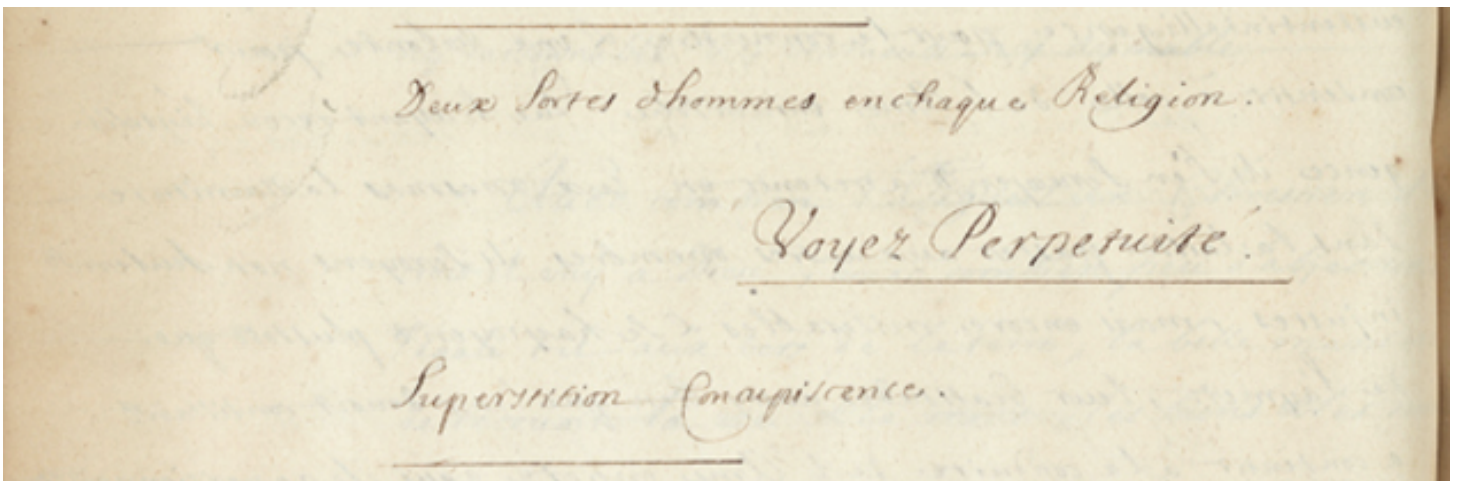 Deux Sortes d'hommes en chaque Religion.
Voyez Perpetuité.
Superstition Concupiscence.